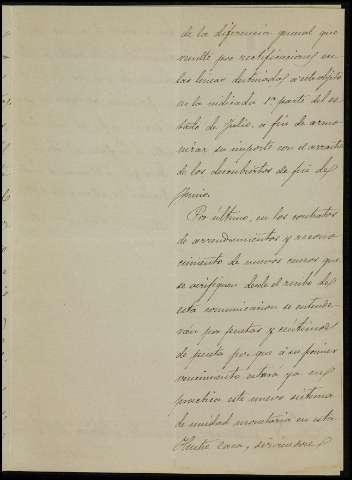 de la diferencia general que
resulte por rectificaciones en
las lineas destinadas a este objeto
en la indicada 1ª parte del es
tado de Julio, a fin de armo
nizar su importe con el arrastre
de los descubiertos de fin de
Junio.
Por último, en los contratos
de arrendamientos y recono
cimiento de nuevos censos que
se verifiquen desde el recibo de
esta comunicacion se entende
ran por pesetas y céntimos
de peseta por que á su primer
vencimiento estará ya en
practica este nuevo sistema
de unidad monetaria en esta
Ilustre casa, sirviendose